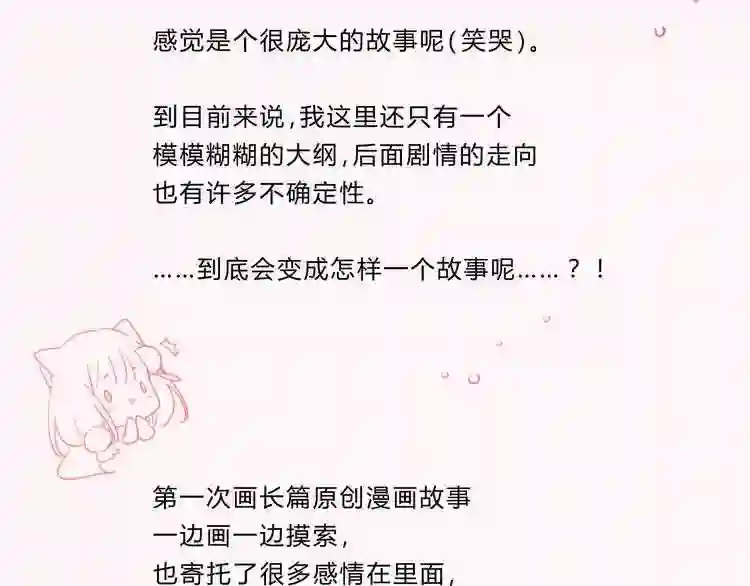 感觉是个很庞大的故事呢(笑哭)。
到目前来说,我这里还只有一个
模模糊糊的大纲,后面剧情的走向
也有许多不确定性。
……到底会变成怎样一个故事呢……？！
第一次画长篇原创漫画故事
一边画一边摸索,
也寄托了很多感情在里面,